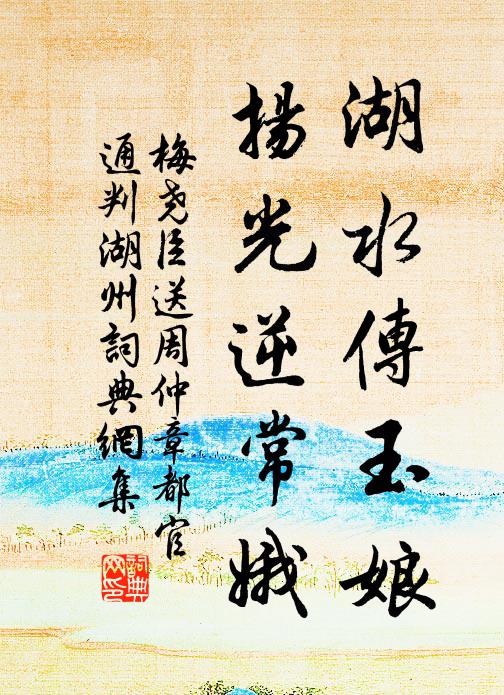 湖水傳玉娘
揚光逆常娥
梅堯臣送周仲章都官
通判湖州詞典網集
詞典網印